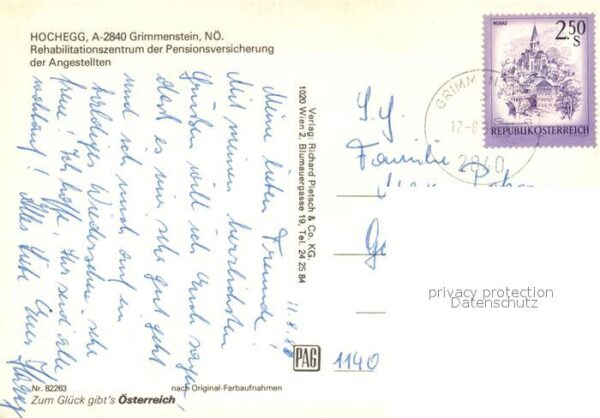 HOCHEGG, A-2840 Grimmenstein, NÖ.
Rehabilitationszentrum der Pensionsversicherung
der Angestellten
Meine lieben Freunde!
Mit meinen herzlichsten
Grüßen will ich Euch sagen,
daß es mir sehr gut geht
und ich mich auf ein
baldiges Wiedersehen sehr
freue! Ich hoffe, Ihr seid alle
wohlauf! Alles Liebe Euer
11.8.
Verlag: Richard Pietsch & Co. KG.
1020 Wien 2, Blumauergasse 19, Tel. 24 25 84
MURAU
2.50
S
REPUBLIK ÖSTERREICH
GRIMMEN
12-8
2840
Familie
1140
privacy protection
Datenschutz
PAG
Nr. 82263
nach Original-Farbaufnahmen
Zum Glück gibt's Österreich